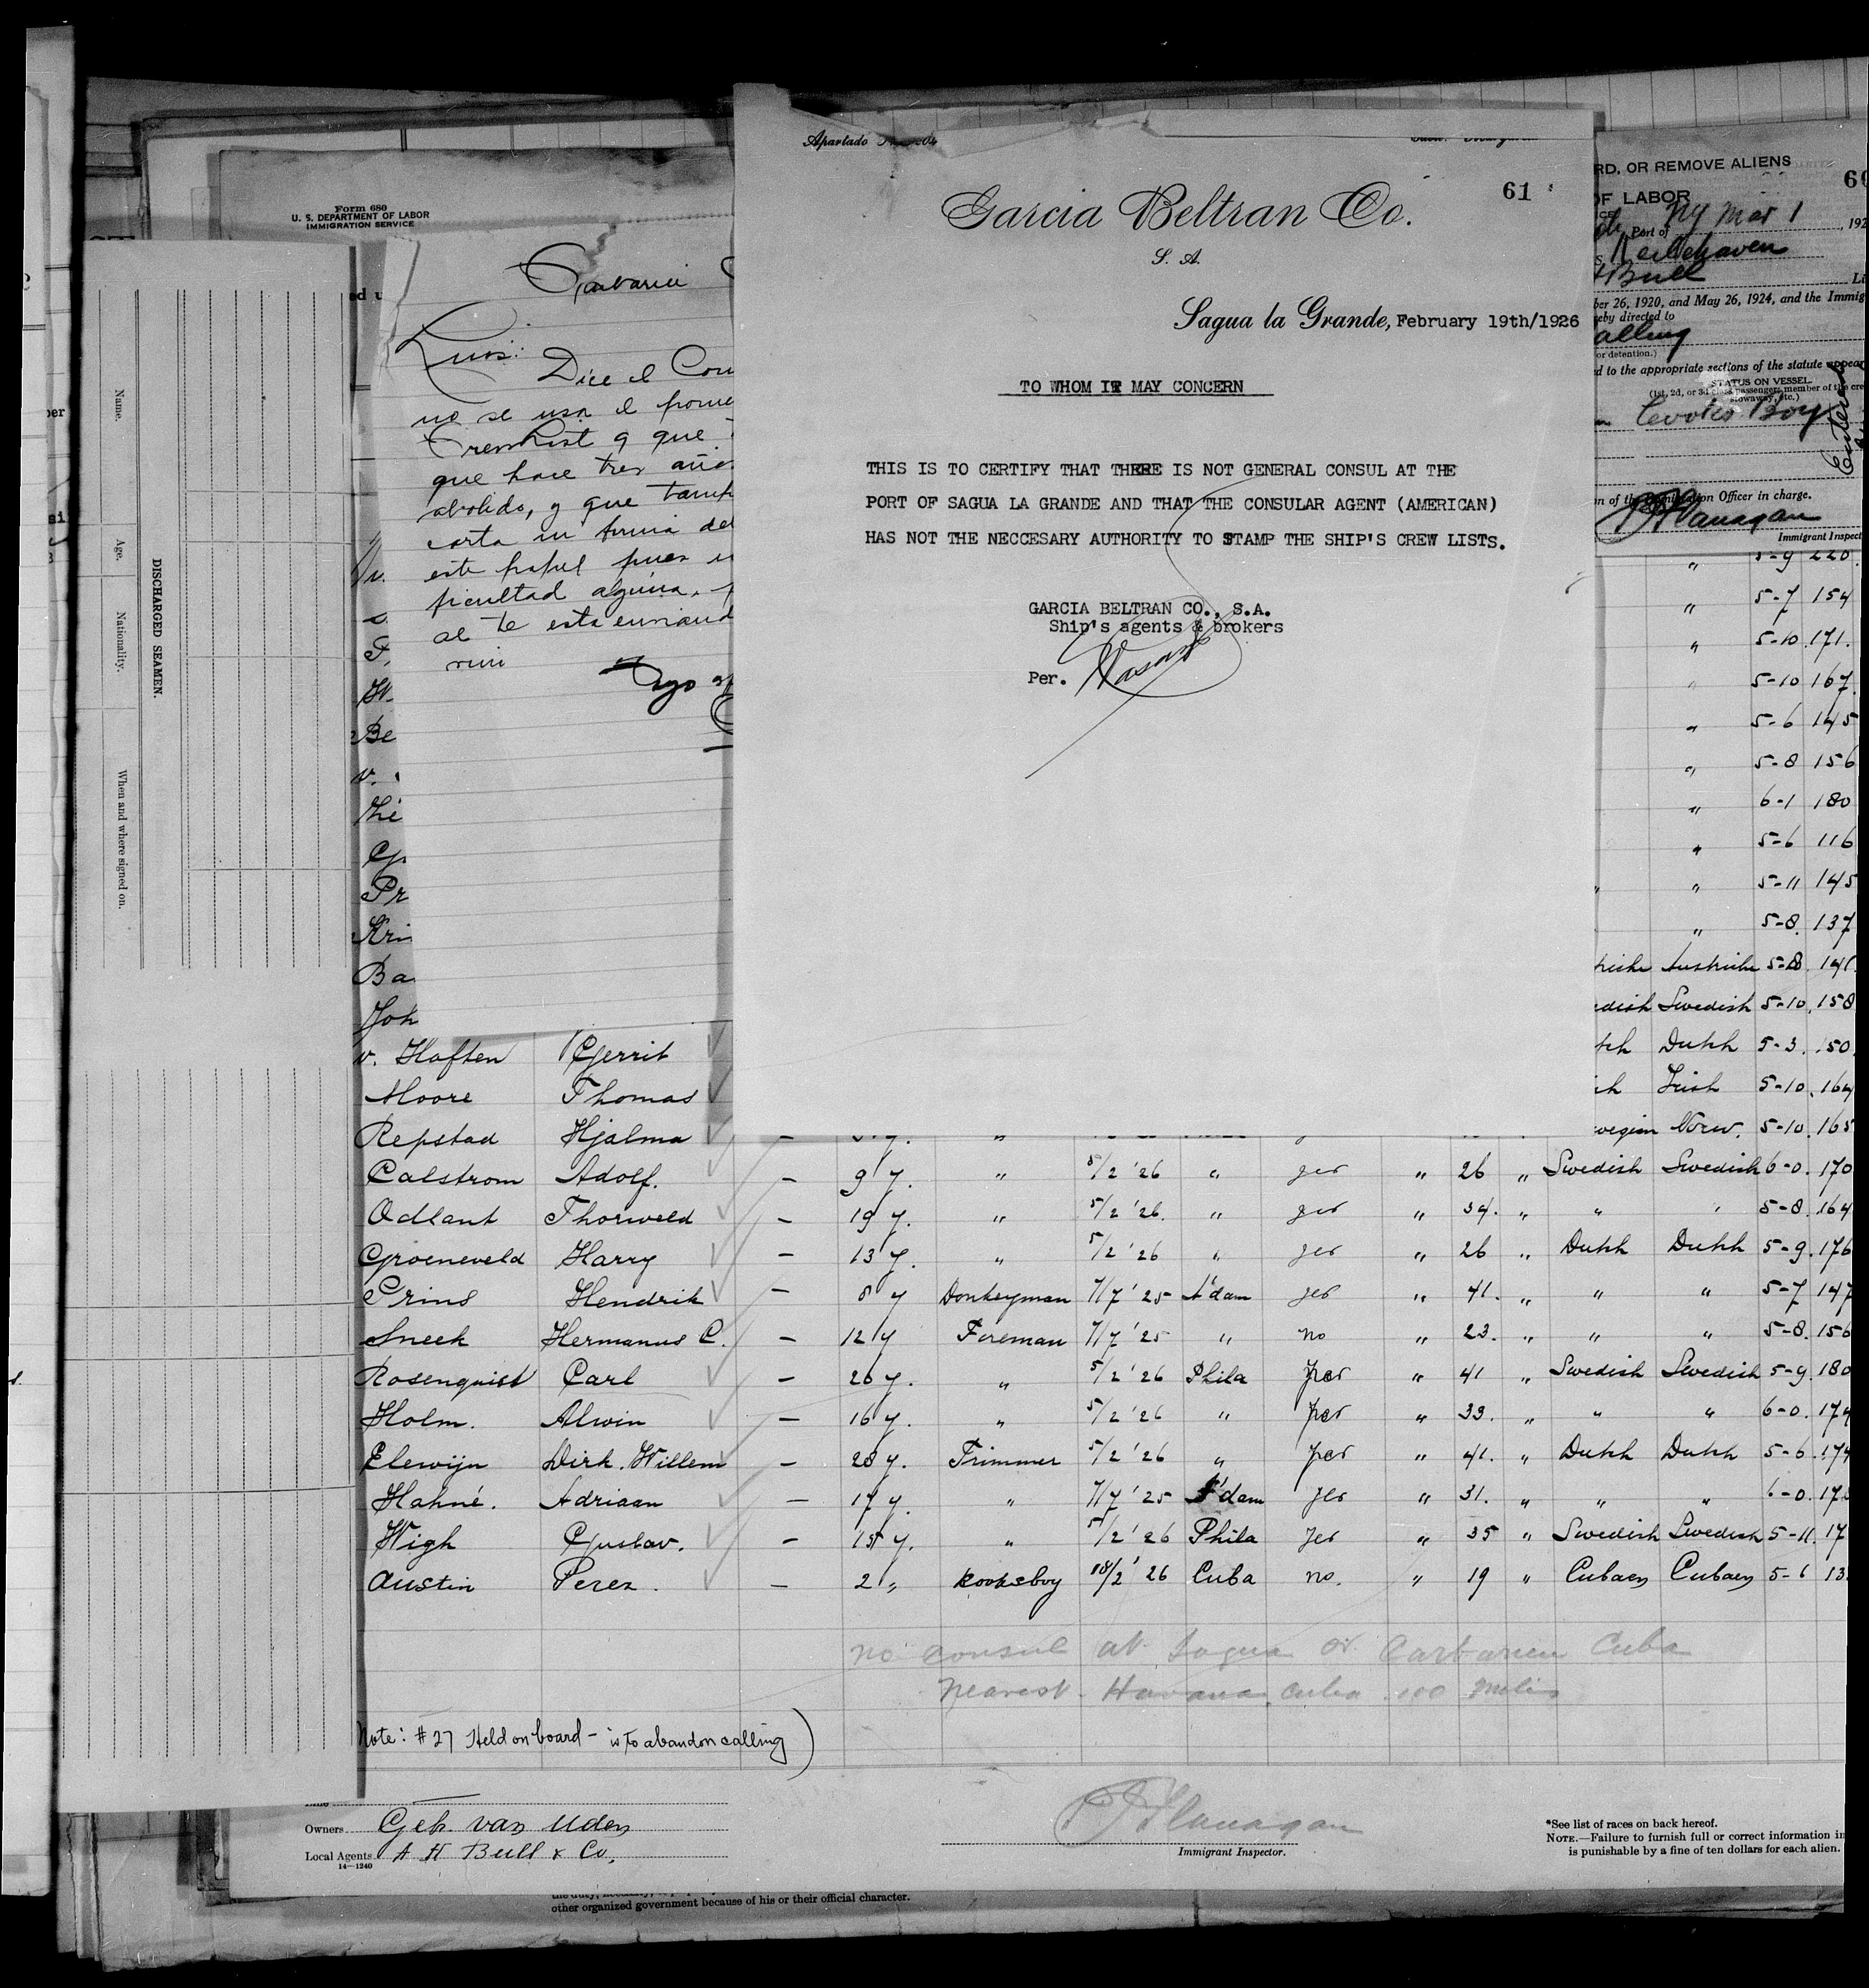 Form 680
U. S. DEPARTMENT OF LABOR
IMMIGRATION SERVICE
Name.
Age.
Nationality.
When and where signed on.
DISCHARGED SEAMEN.
Luis:
Dice el Con
no se usa el
que hace tres años
abolido, y que tamp
carta en forma del
este papel pues
ficultad alguna.
al te esta enviand
Apartado
Garcia Beltran Co.
S. A.
61
Sagua la Grande, February 19th/1926
TO WHOM IT MAY CONCERN
THIS IS TO CERTIFY THAT THERE IS NOT GENERAL CONSUL AT THE
PORT OF SAGUA LA GRANDE AND THAT THE CONSULAR AGENT (AMERICAN)
HAS NOT THE NECCESARY AUTHORITY TO STAMP THE SHIP'S CREW LISTS.
GARCIA BELTRAN CO., S.A.
Ship's agents & brokers
Per.
RD, OR REMOVE ALIENS
OF LABOR
Port of NY Mar 1, 192
Bull
ber 26, 1920, and May 26, 1924, and the Immig
eby directed to
alling
or detention.)
d to the appropriate sections of the statute appear
STATUS ON VESSEL.
(1st, 2d, or 3d class passenger; member of the cre
stowaway, etc.)
Cooks Boy
n of the Immigration Officer in charge.
P J Flanagan
Immigrant Inspect
5-9 220
" 5-7 154
" 5-10 171.
" 5-10 167
" 5-6 145
" 5-8 156
" 6-1 180
" 5-6 116
" 5-11 145
" 5-8. 137
W.
Be
v.
Pr
Kri
Ba
5-8. 141
Joh
edish Swedish 5-10. 158
v. Haften Gerrit
Dutch 5-3. 150
Moore Thomas
Irish 5-10. 164
Repstad Hjalma
wegian Norw. 5-10. 165
Calstrom Adolf. — 9 y. " 5/2 '26 " yes " 26 " Swedish Swedish 6-0. 170
Odlant Thorweld — 19 y. " 5/2 '26. " yes " 34. " " " 5-8. 164
Groeneveld Harry — 13 y. " 5/2 '26 " yes " 26 " Dutch Dutch 5-9. 176
Prins Hendrik — 8 y Donkeyman 7/7 '25 A'dam yes " 41. " " " 5-7 147
Sneek Hermanus C. — 12 y Fireman 7/7 '25 " no " 23. " " " 5-8. 156
Rosenquist Carl — 26 y. " 5/2 '26 Phila yes " 41 " Swedish Swedish 5-9. 180
Holm. Alwin — 16 y. " 5/2 '26 " yes " 33. " " " 6-0. 174
Elewijn Dirk. Willem — 28 y. Trimmer 5/2 '26 " yes " 41. " Dutch Dutch 5-6. 174
Hahné. Adriaan — 17 y. " 7/7 '25 A'dam yes " 31. " " " 6-0. 17
Wigh Gustav. — 15 y. " 5/2 '26 Phila yes " 35 " Swedish Swedish 5-11. 17
Austin Perez. — 2 " Kooksboy 18/2 '26 Cuba no. " 19 " Cuban Cuban 5-6 13
no consul at Sagua or Carbarien Cuba
nearest - Havana Cuba 100 miles
Note: #27 Held on board - is to abandon calling)
Owners Geb. van Uden
Local Agents A H Bull & Co.
14—1240
P J Flanagan
Immigrant Inspector.
*See list of races on back hereof.
NOTE.—Failure to furnish full or correct information in
is punishable by a fine of ten dollars for each alien.
other organized government because of his or their official character.